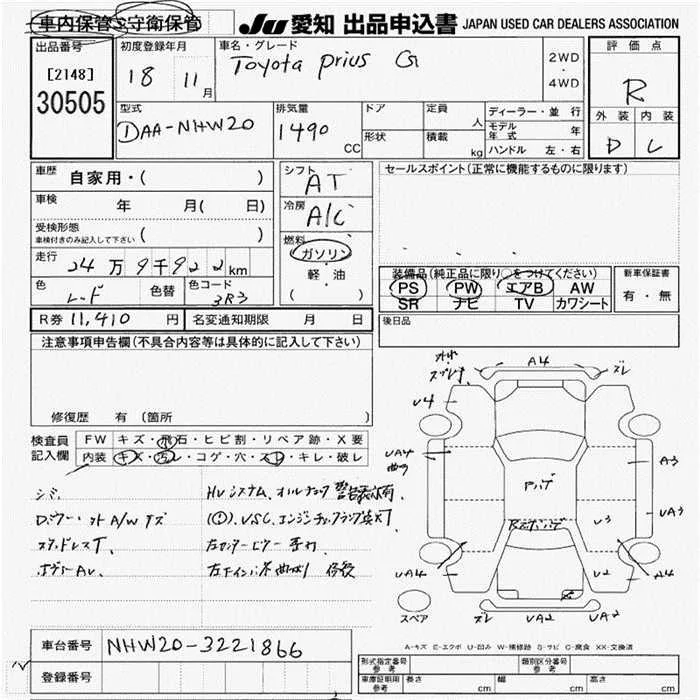 車内保管 S守衛保管
JU 愛知 出品申込書 JAPAN USED CAR DEALERS ASSOCIATION
出品番号
[2148]
30505
初度登録年月
18 11 月
車名・グレード
Toyota prius G
2WD
・
4WD
評価点
R
外装 内装
D L
型式
DAA-NHW20
排気量
1490 CC
ドア
形状
定員 人
積載 kg
ディーラー・並行
モデル年式 年
ハンドル 左・右
車歴 自家用・( )
車検 年 月( 日)
受検形態
車検付きのみ記入して下さい ( )
走行 24万9千922km
色 レッド
色替
色コード 3R3
シフト AT
冷房 A/C
燃料
ガソリン
・
軽・油
( )
セールスポイント(正常に機能するものに限ります)
装備品(純正品に限り○をつけてください)
PS PW エアB AW
SR ナビ TV カワシート
新車保証書
有・無
R券 11,410 円
名変通知期限 月 日
後日品
注意事項申告欄(不具合内容等は具体的に記入して下さい)
修復歴 有 (箇所 )
検査員記入欄
FW キズ・飛石・ヒビ割・リペア跡・X要
内装 キズ・汚レ・コゲ・穴・スレ・キレ・破レ
HVシステム
A/Wキズ
VSC、エンジンチェックランプ点灯
スタッドレスT、
左センターピラー
A4
ズレ
U4
UA4
曲り
A3
UA3
U3
UA4
U2
A4
ズレ UA2 UA2
スペア
A-キズ E-エクボ U-凹み W-補修跡 S-サビ C-腐食 XX-交換済
車台番号 NHW20-3221866
登録番号
型式指定番号 参考
類別区分番号 参考
車庫証明用 参考 長さ cm 幅 cm 高さ cm